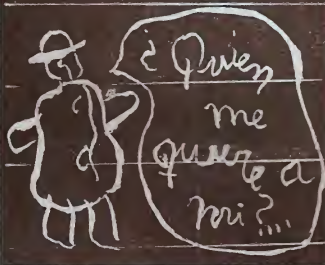 ¿Quien
me
quiere a
mi?...